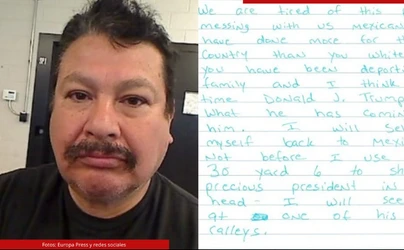 We are tired of this
messing with us mexicans
have done more for th
country than you white
you have been deporti
family and I think
time Donald J. Trump
What he has comin
him. I will sel
myself back to Mexi
Not before I use
30 yard 6 to sh
precious president in
head - I will see
at one of his
ralleys.
Fotos: Europa Press y redes sociales